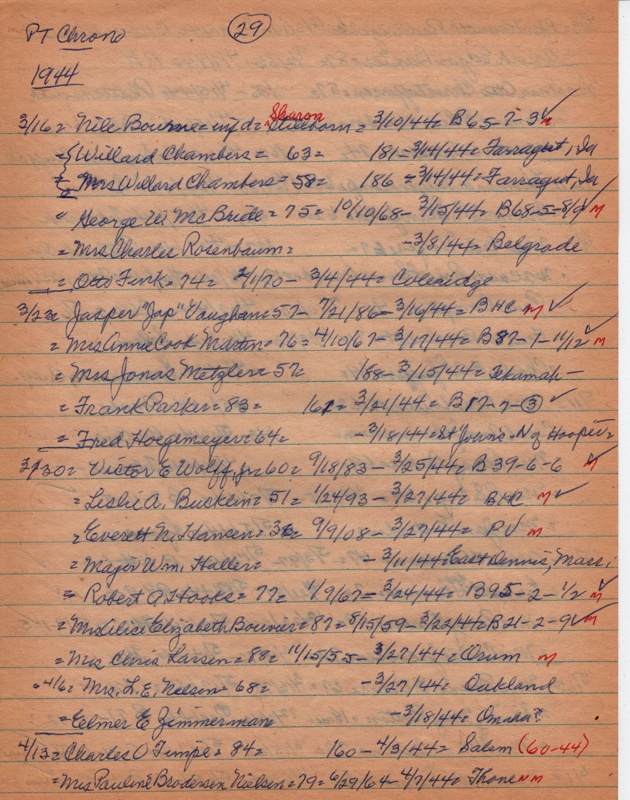 PT Chrono 29
1944
3/16 = Nile Bourne = inf d = Sharon Stillborn = 3/10/44 = B65-7-3 ✓ M
= { Willard Chambers = 63 = 181 = 3/14/44 = Farragut, Ia
= { Mrs Willard Chambers = 58 = 186 = 3/14/44 = Farragut, Ia
" George W. McBride = 75 = 10/10/68 - 3/15/44 = B68-5-8/9 ✓ M
= Mrs Charles Rosenbaum = -3/8/44 = Belgrade
= Otto Fink = 74 = 2/1/70 - 3/4/44 = Coleridge
3/23 = Jasper "Jap" Vaughan = 57 - 7/21/86 = 3/16/44 = BHC M ✓
= Mrs Annie Cook Martin = 76 = 4/10/67 - 3/17/44 = B87-1-11/12 ✓ M
= Mrs Jonas Metzler = 57 = 188 - 3/15/44 = Tekamah -
= Frank Parker = 83 = 161 = 3/21/44 = B17-7-3 ✓
= Fred Hoegemeyer = 64 = -3/18/44 = St John's - N of Hooper =
3/30 = Victor E Wolff, Jr = 60 = 9/18/83 - 3/25/44 = B39-6-6 ✓ M
= Leslie A. Bucklin = 51 = 1/24/93 - 3/27/44 = BHC M ✓
= Everett N. Hansen = 36 = 9/9/08 - 3/27/44 = PV M
= Major Wm. Haller = - 3/11/44 = East Dennis, Mass;
= Robert A Hooks = 77 = 1/9/67 = 3/24/44 = B95-2-1/2 ✓ M
= Mrs Elizabeth Bouvier = 87 = 8/15/59 - 3/22/44 = B21-2-9 ✓ M
= Mrs Chris Larsen = 88 = 11/15/55 - 3/27/44 = Orum M
4/6 = Mrs. L. E. Nelson = 68 = -3/27/44 = Oakland
= Elmer E Zimmerman -3/18/44 = Omaha?
4/13 = Charles O Timpe = 84 = 160 - 4/3/44 = Salem (60-44)
= Mrs Pauline Brodersen Nielsen = 79 = 6/29/64 - 4/7/44 = Thone NM